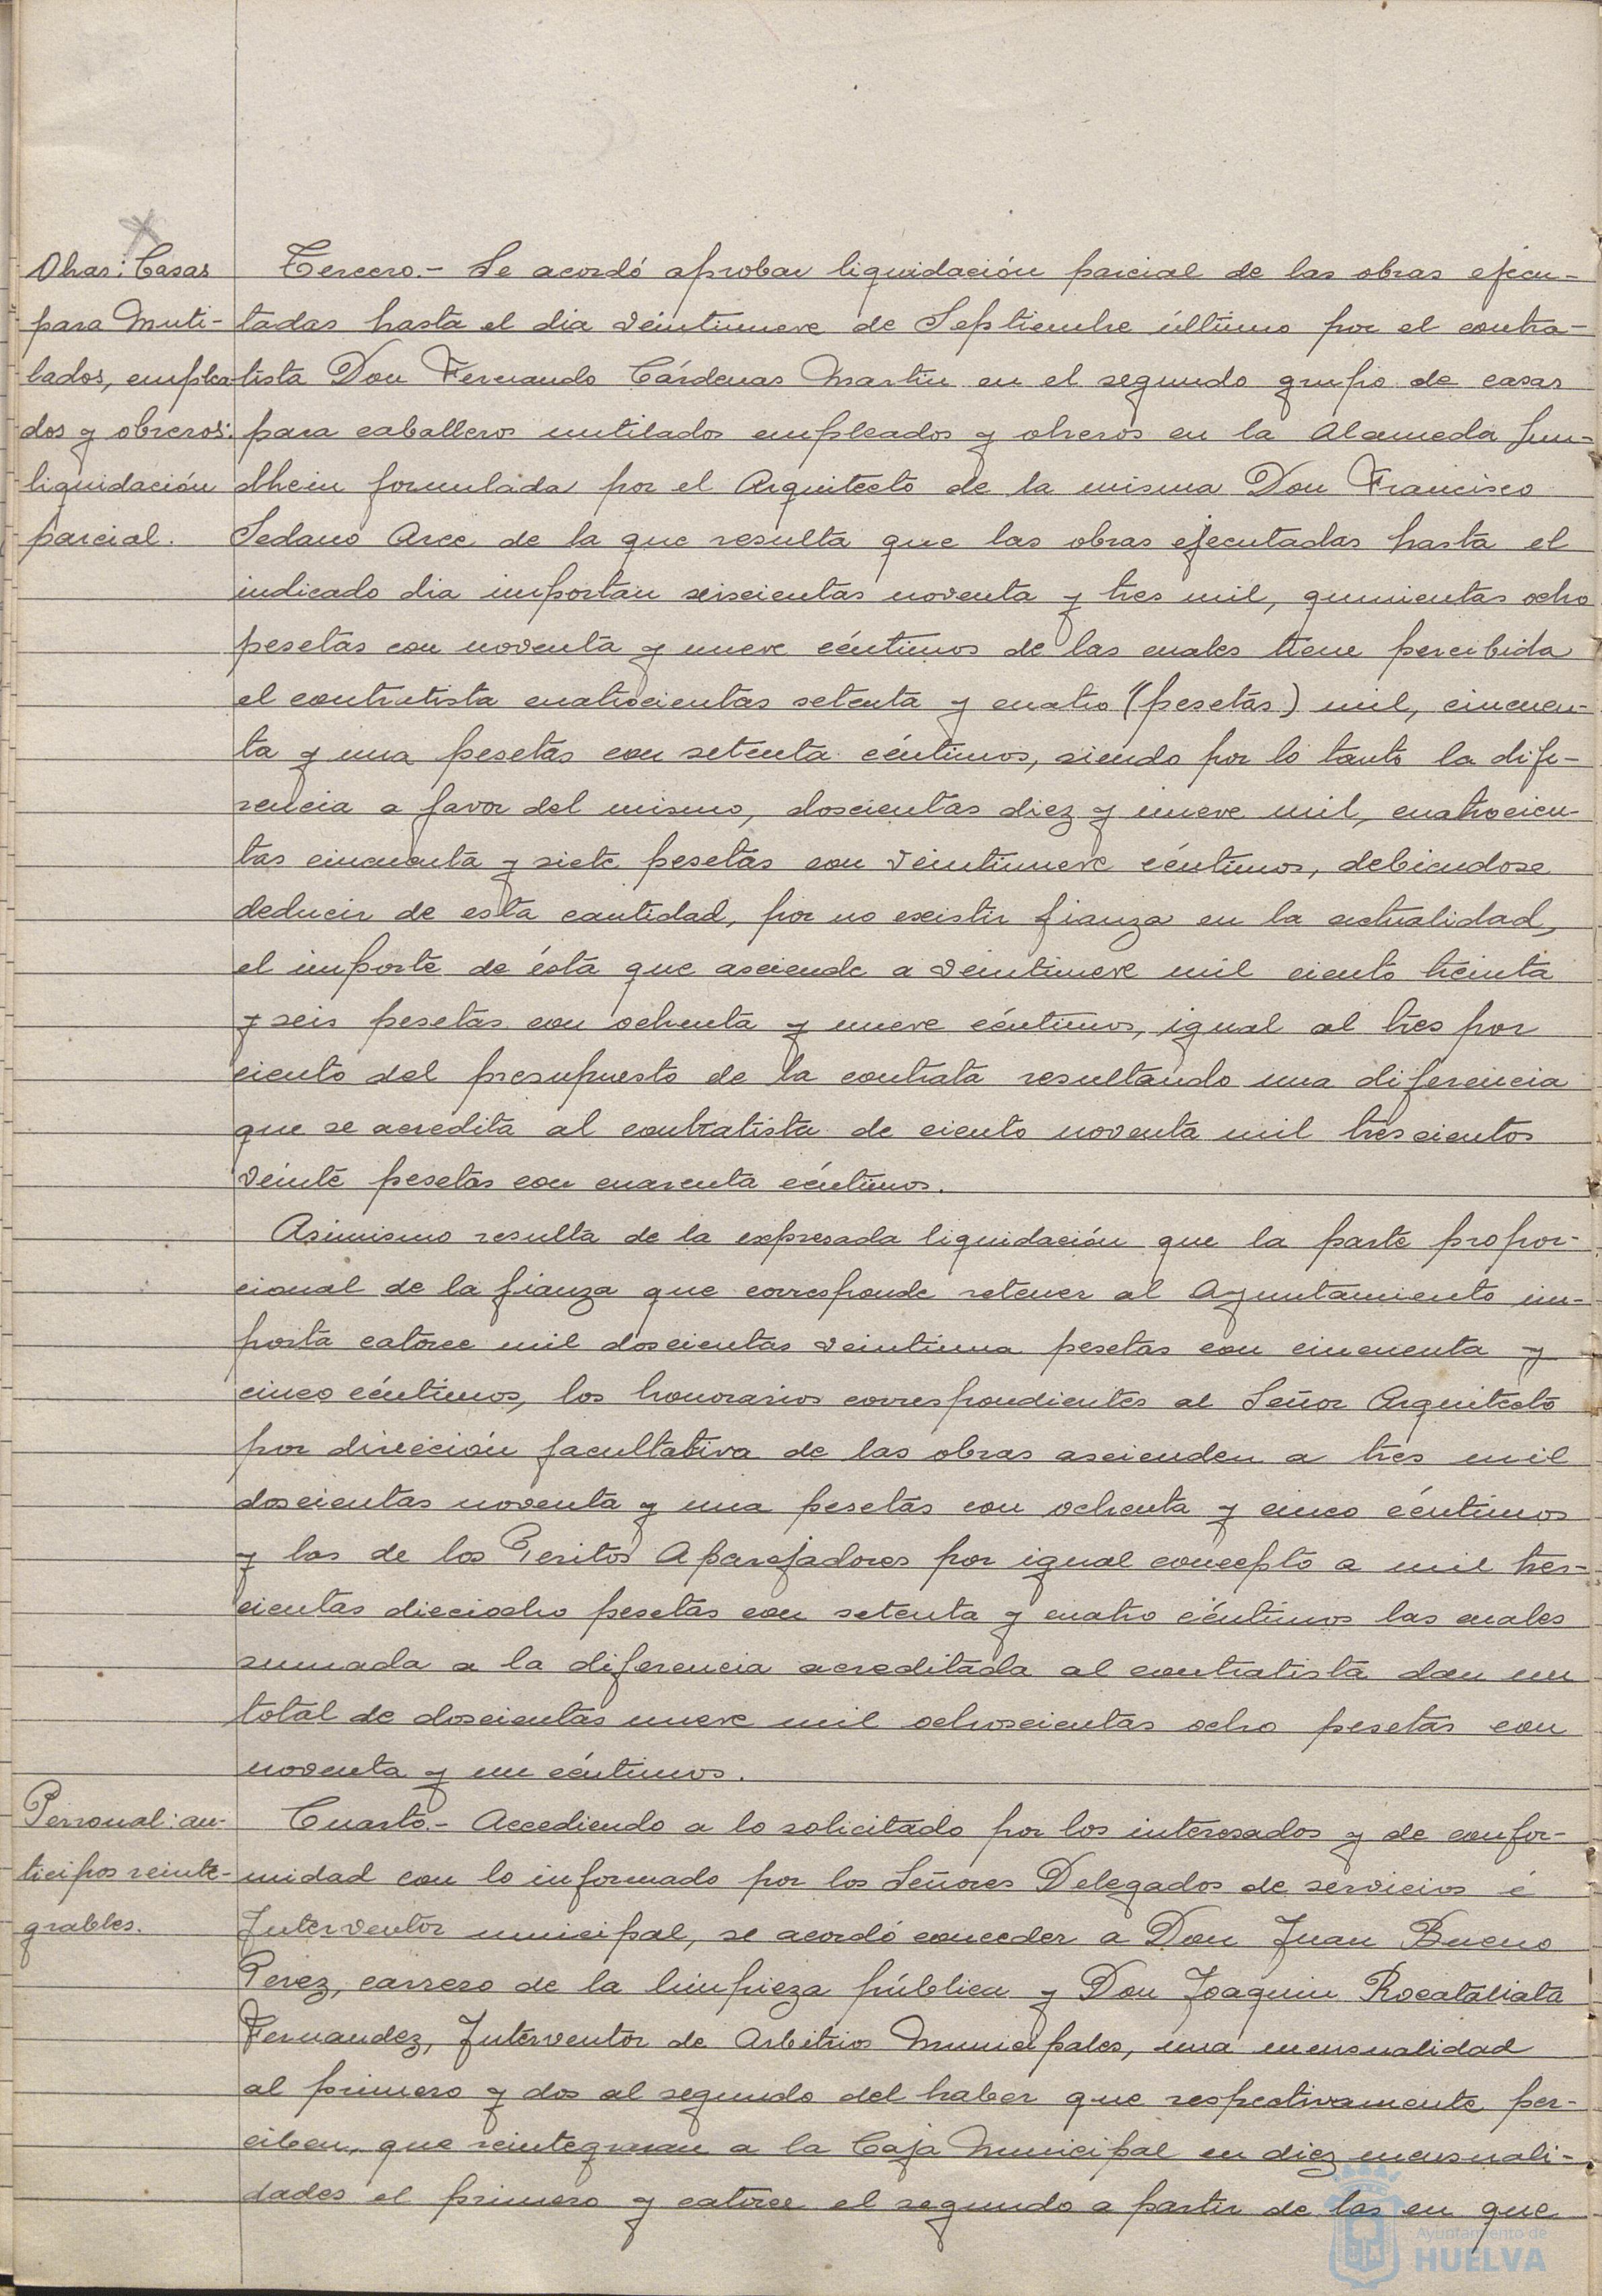 Obras: Casas
para Muti-
lados, emplea-
dos y obreros:
liquidación
parcial.
Tercero.- Se acordó aprobar liquidación parcial de las obras ejecu-
tadas hasta el dia veintinueve de Septiembre último por el contra-
tista Don Fernando Cárdenas Martin en el segundo grupo de casas
para caballeros mutilados empleados y obreros en la Alameda Sun-
dhein formulada por el Arquitecto de la misma Don Francisco
Sedano Arce de la que resulta que las obras ejecutadas hasta el
indicado dia importan seiscientas noventa y tres mil, quinientas ocho
pesetas con noventa y nueve céntimos de las cuales tiene percibida
el contratista cuatrocientas setenta y cuatro "(pesetas) mil, cincuen-
ta y una pesetas con setenta céntimos, siendo por lo tanto la dife-
rencia a favor del mismo, doscientas diez y nueve mil, cuatrocien-
tas cincuenta y siete pesetas con veintinueve céntimos, debiendose
deducir de esta cantidad, por no existir fianza en la actualidad,
el importe de ésta que asciende a veintinueve mil ciento treinta
y seis pesetas con ochenta y nueve céntimos, igual al tres por
ciento del presupuesto de la contrata resultando una diferencia
que se acredita al contratista de ciento noventa mil trescientos
veinte pesetas con cuarenta céntimos.
Asimismo resulta de la expresada liquidación que la parte propor-
cional de la fianza que corresponde retener al Ayuntamiento im-
porta catorce mil doscientas veintiuna pesetas con cincuenta y
cinco céntimos, los honorarios correspondientes al Señor Arquitecto
por dirección facultativa de las obras ascienden a tres mil
doscientas noventa y una pesetas con ochenta y cinco céntimos
y las de los Peritos Aparejadores por igual concepto a mil tres-
cientas dieciocho pesetas con setenta y cuatro céntimos las cuales
sumada a la diferencia acreditada al contratista dan un
total de doscientas nueve mil ochoscientas ocho pesetas con
noventa y un céntimos.
Personal: an-
ticipos reinte-
grables.
Cuarto.- Accediendo a lo solicitado por los interesados y de confor-
midad con lo informado por los Señores Delegados de servicios é
Interventor municipal, se acordó conceder a Don Juan Bueno
Perez, carrero de la limpieza pública y Don Joaquin Rocataliata
Fernandez, Interventor de Arbitrios Municipales, una mensualidad
al primero y dos al segundo del haber que respectivamente per-
ciben, que reintegraran a la Caja Municipal en diez mensuali-
dades el primero y catorce el segundo a partir de las en que
Ayuntamiento de
HUELVA